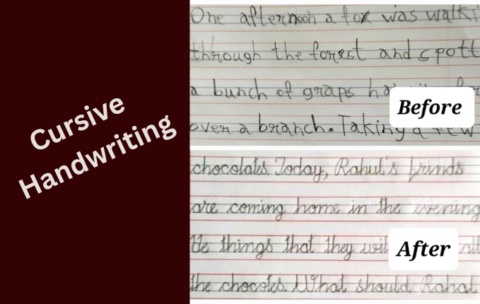 Cursive
Handwriting
One afternoon a fox was walki
through the forest and spott
a bunch of graps
over a branch. Taking a few
Before
chocolats. Today, Rahul's frinds
are coming home in the evening
He things that they wil
the chocolts. What should Rahul
After